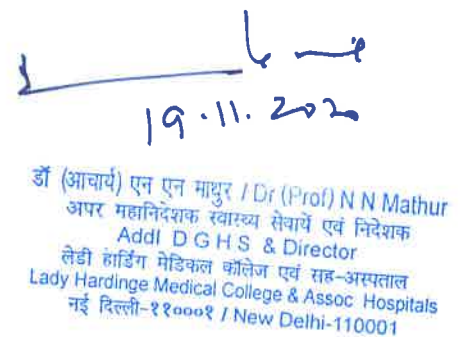 19.11.2020
डॉ (आचार्य) एन एन माथुर / Dr (Prof) N N Mathur
अपर महानिदेशक स्वास्थ्य सेवायें एवं निदेशक
Addl D G H S & Director
लेडी हार्डिंग मेडिकल कॉलेज एवं सह-अस्पताल
Lady Hardinge Medical College & Assoc Hospitals
नई दिल्ली-११०००१ / New Delhi-110001